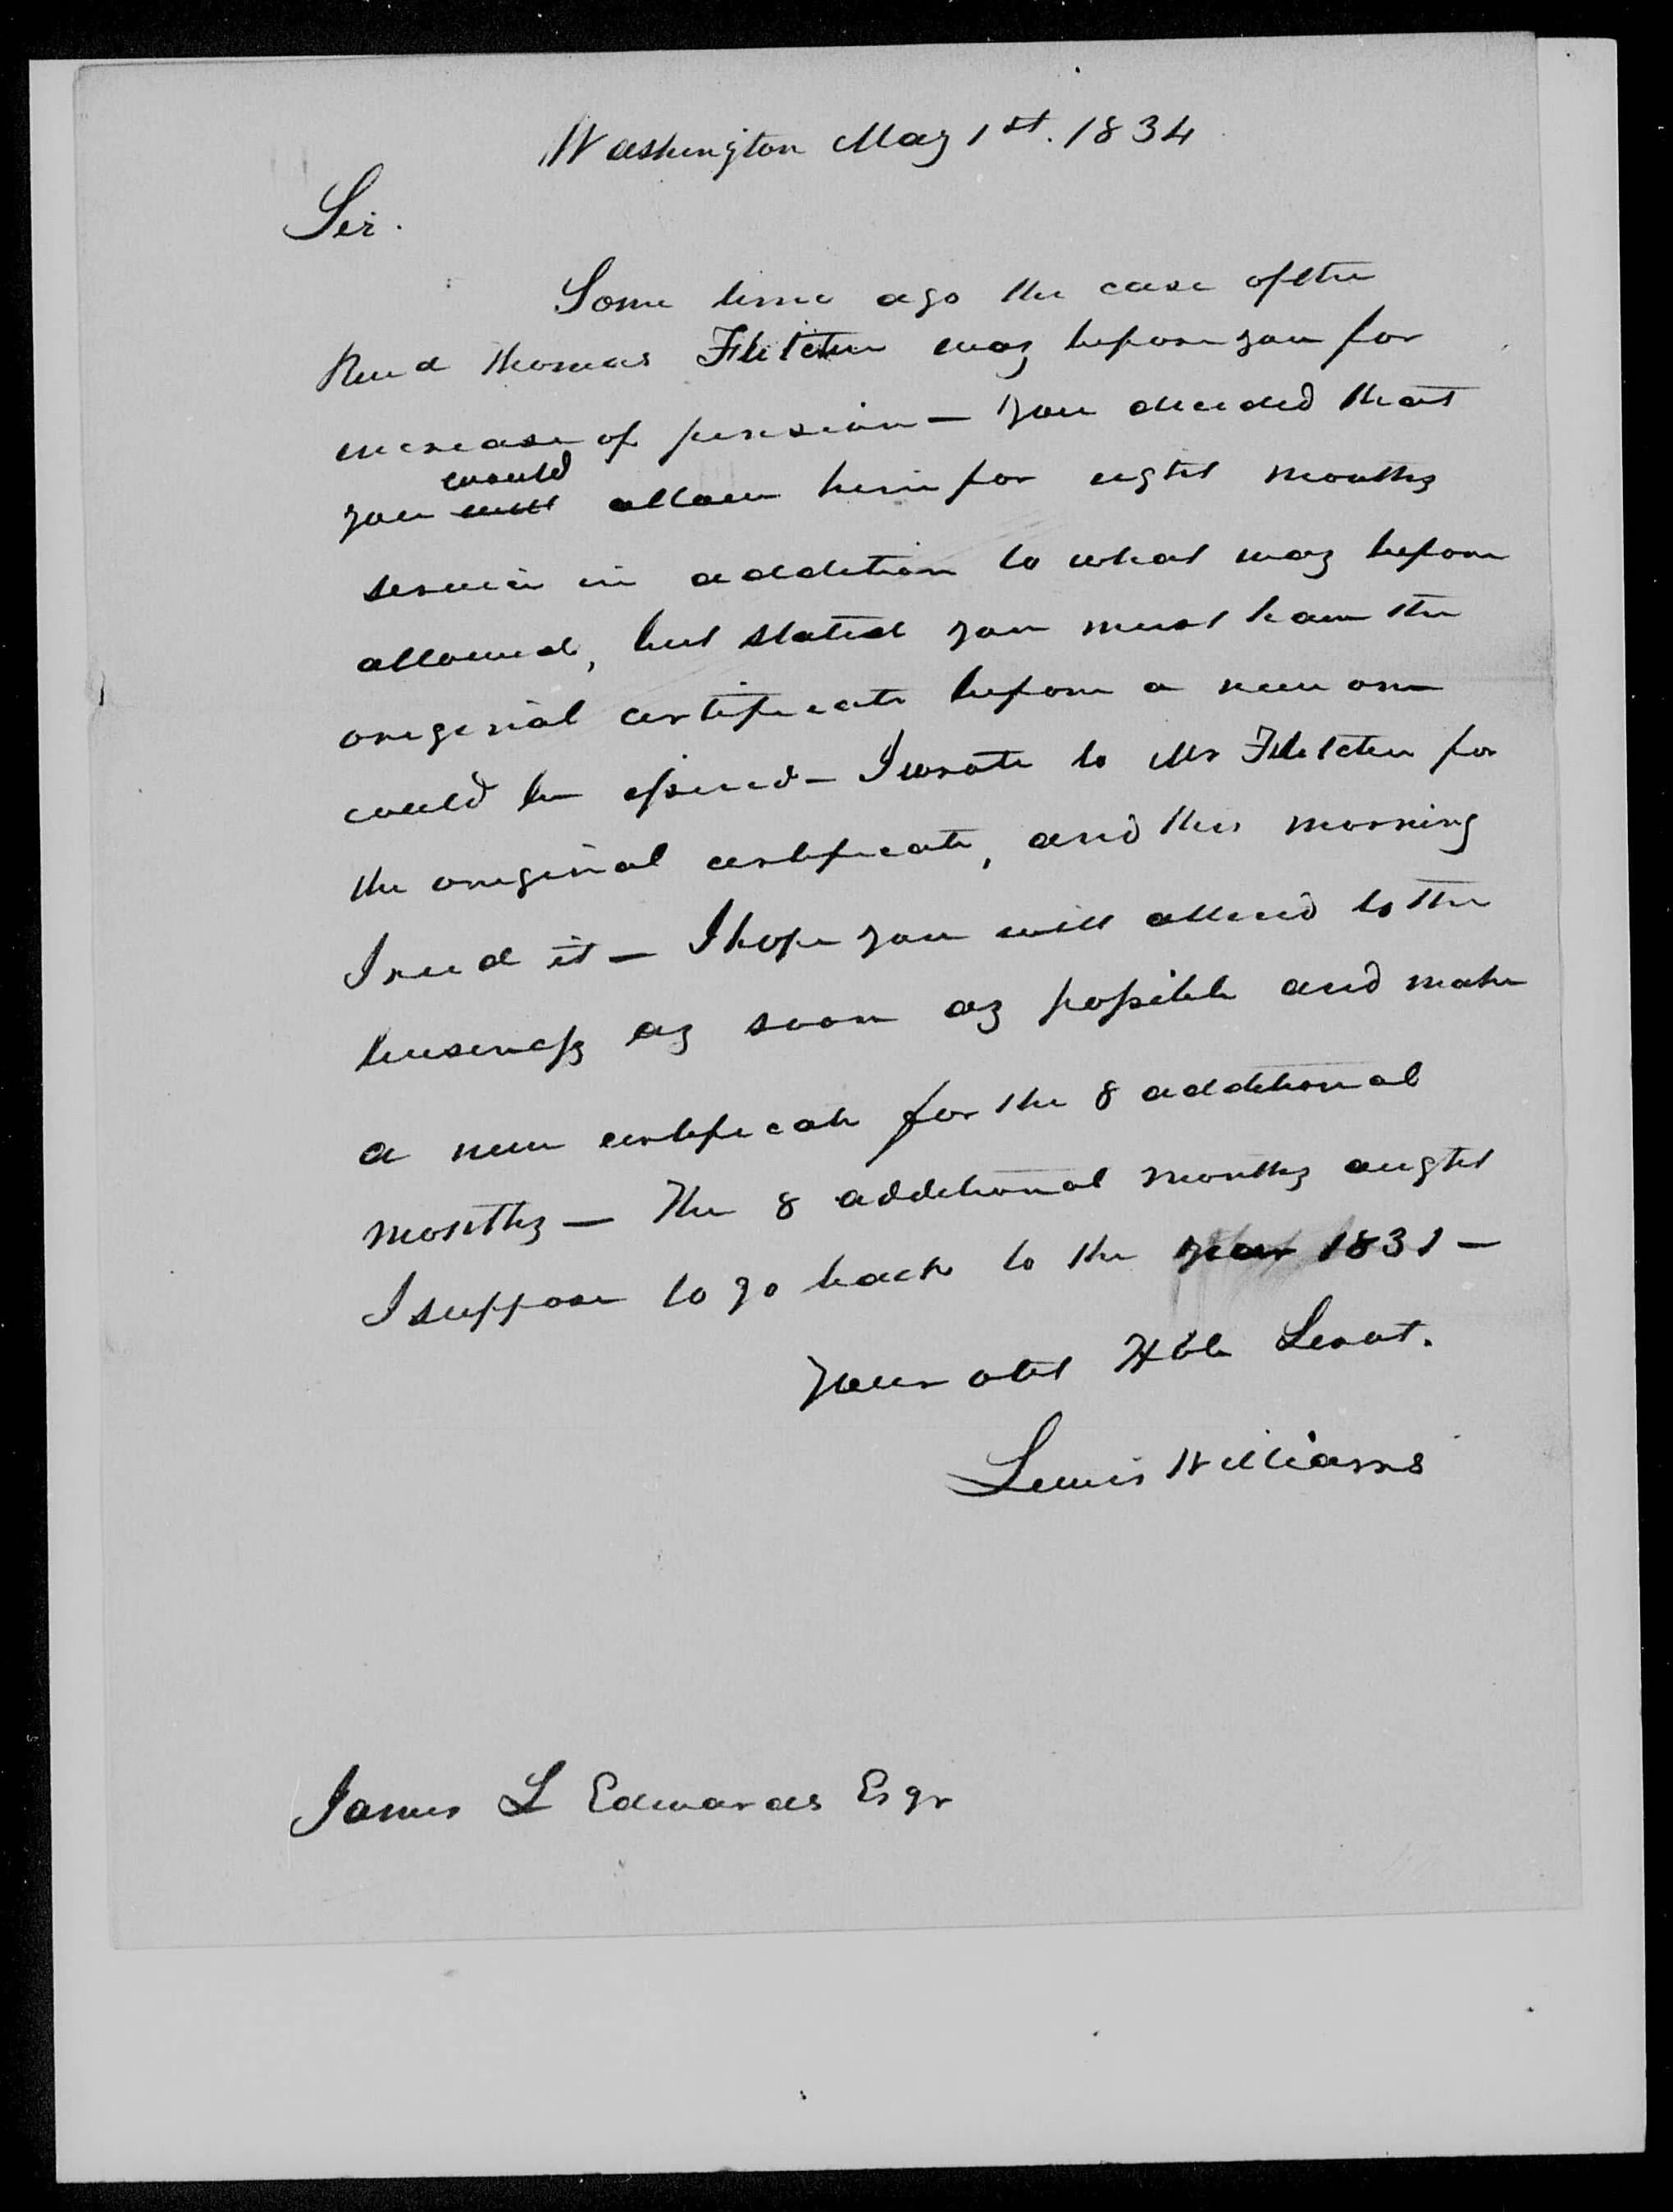 Washington May 1st. 1834
Sir.
Some time ago the case of the
Revd Thomas Fletcher was before you for
increase of pension — you decided that
would
you will allow him for eight months
service in addition to what was before
allowed, but stated you must have the
original certificate before a new one
could be issued — I wrote to Mr Fletcher for
the original certificate, and this morning
I recd it — I hope you will attend to the
business as soon as possible and make
a new certificate for the 8 additional
months — The 8 additional months aught
I suppose to go back to the year 1831 —
Your obt Hble Servt.
Lewis Williams
James L Edwards Esqr